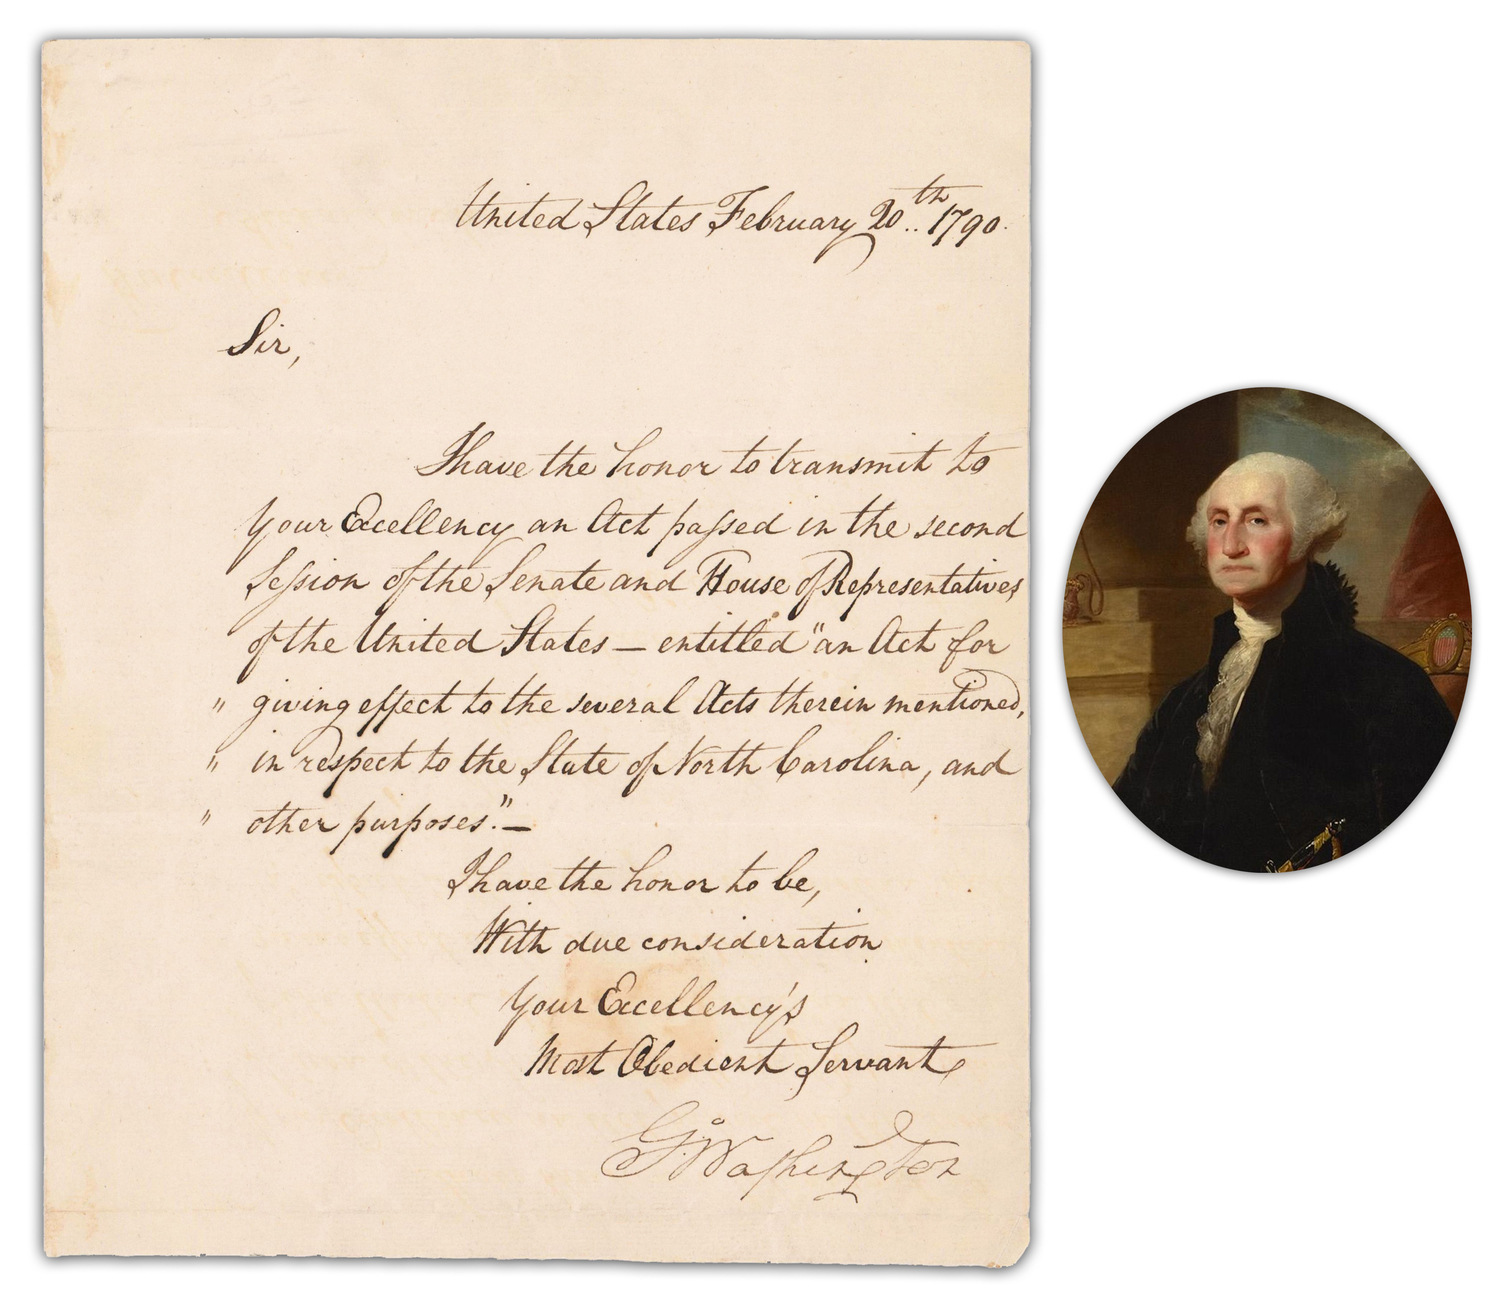 United States February 20..th 1790.
Sir,
I have the honor to transmit to
Your Excellency an Act passed in the second
Session of the Senate and House of Representatives
of the United States — entitled "an Act for
" giving effect to the several Acts therein mentioned,
" in respect to the State of North Carolina, and
" other purposes." —
I have the honor to be,
With due consideration
Your Excellency's
Most Obedient Servant
Go: Washington